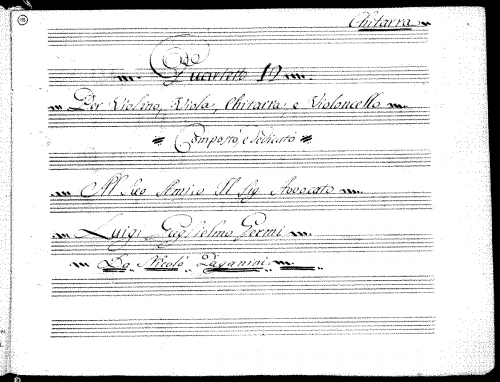 Chitarra
Quartetto
Per Violino, Viola, Chitarra, e Violoncello
Composto, e dedicato
Al Suo Amico Il Sig. Avvocato
Luigi Guglielmo Germi
Da Nicolò Paganini